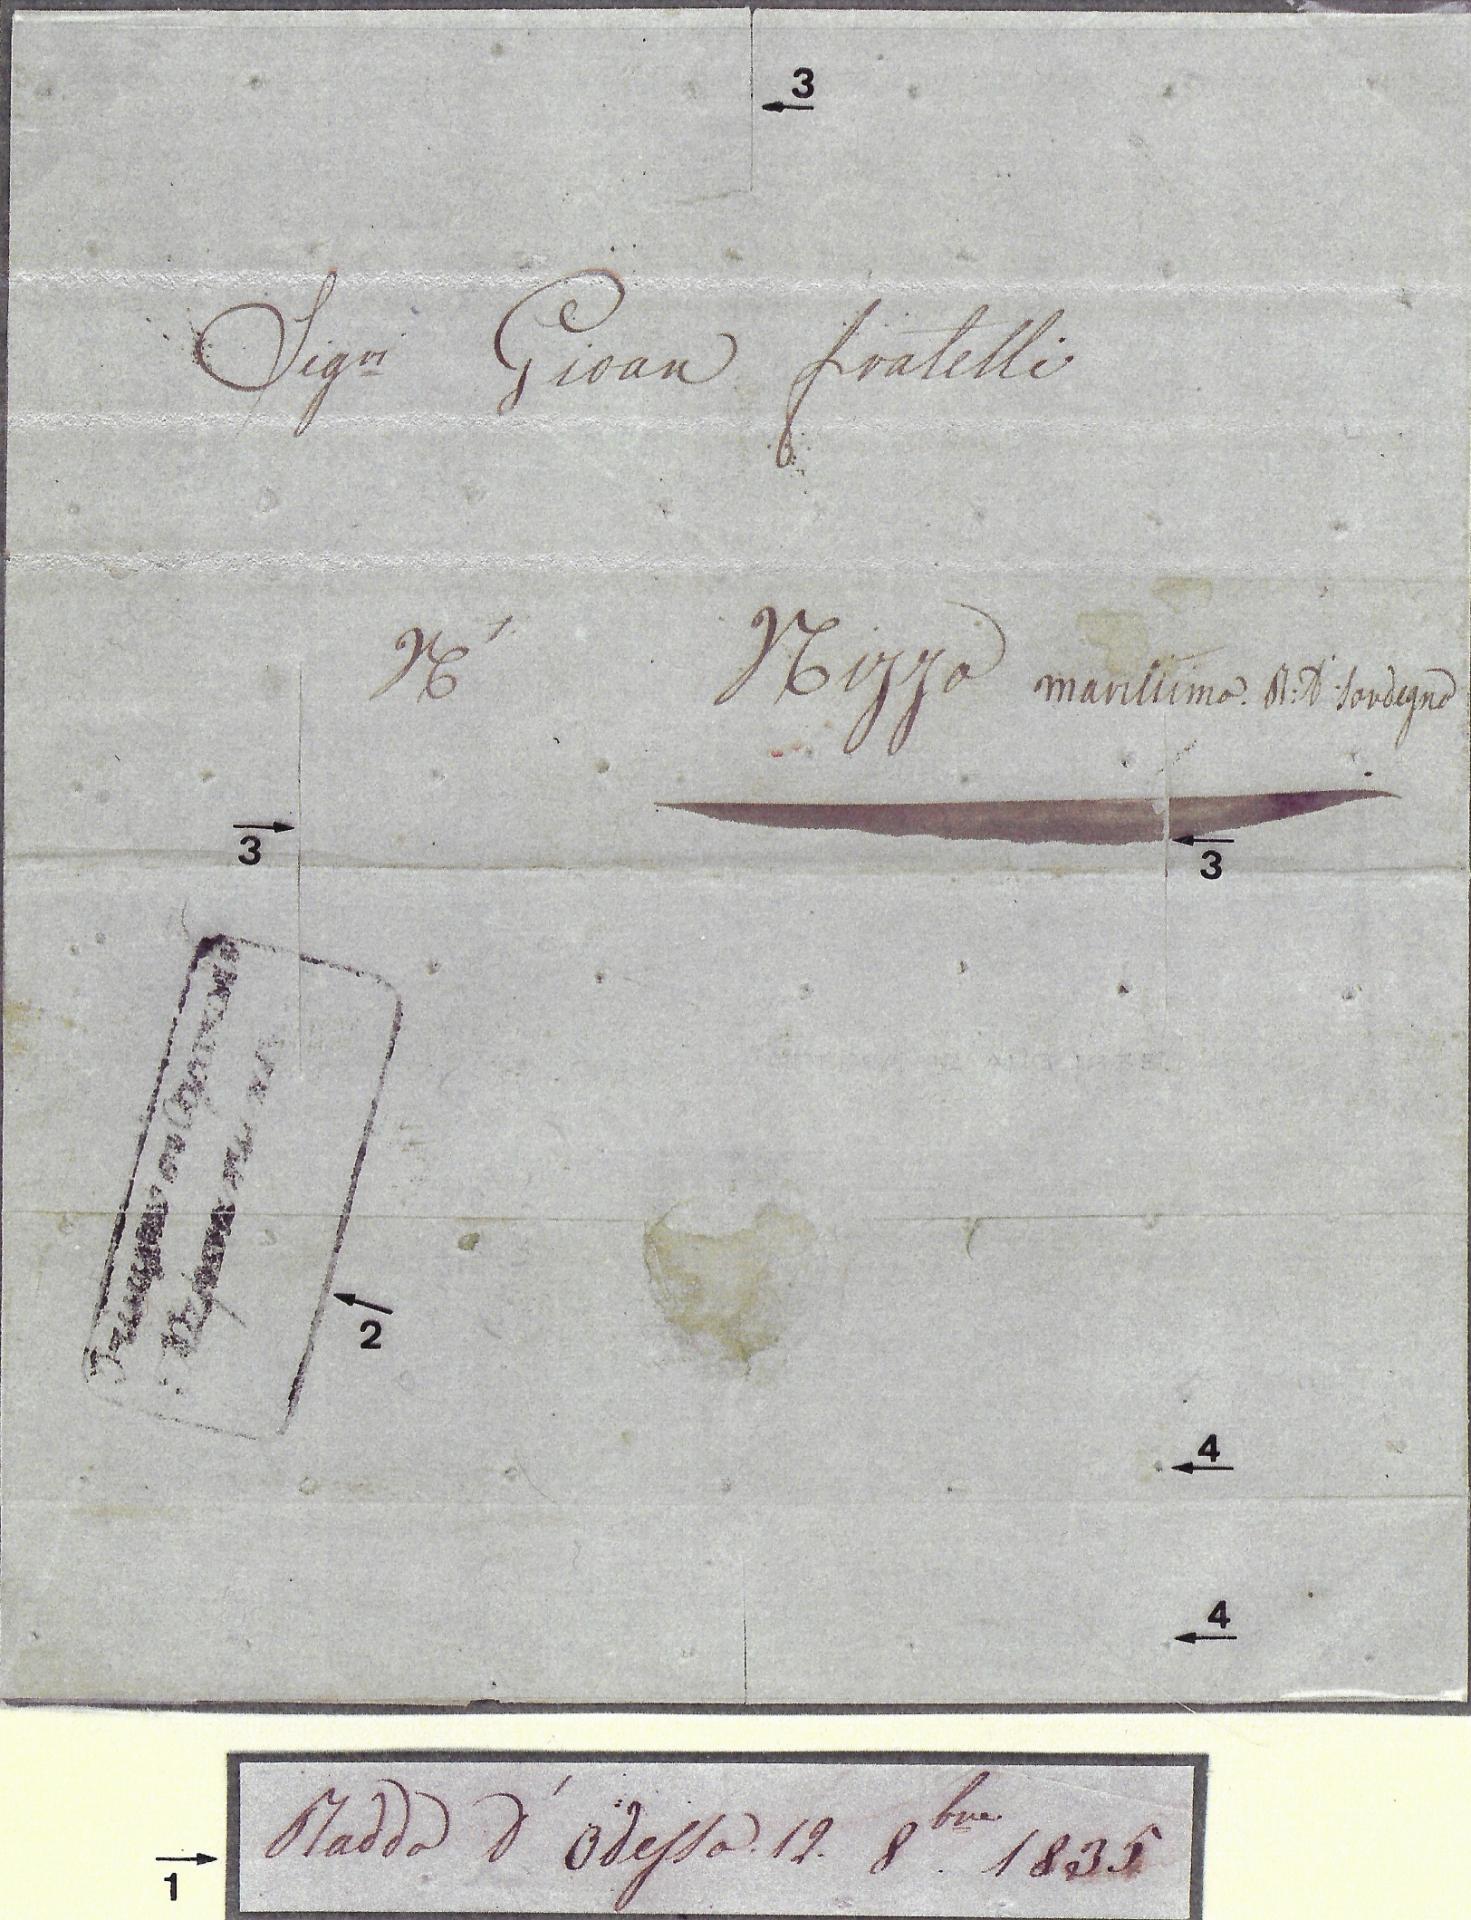 3
Sigri Gioan fratelli
N' Nizza marittima. R: D' Sardegna
3
3
2
4
4
Radda d' Odessa. 12. 8bre 1835
1